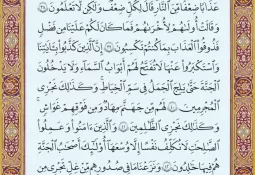 عَذَابًا ضِعْفًا مِّنَ النَّارِ قَالَ لِكُلٍّ ضِعْفٌ وَلَٰكِن لَّا تَعْلَمُونَ ٣٨
وَقَالَتْ أُولَىٰهُمْ لِأُخْرَىٰهُمْ فَمَا كَانَ لَكُمْ عَلَيْنَا مِن فَضْلٍ
فَذُوقُوا۟ الْعَذَابَ بِمَا كُنتُمْ تَكْسِبُونَ ٣٩ إِنَّ الَّذِينَ كَذَّبُوا۟ بِـَٔايَٰتِنَا
وَاسْتَكْبَرُوا۟ عَنْهَا لَا تُفَتَّحُ لَهُمْ أَبْوَٰبُ السَّمَآءِ وَلَا يَدْخُلُونَ
الْجَنَّةَ حَتَّىٰ يَلِجَ الْجَمَلُ فِى سَمِّ الْخِيَاطِ وَكَذَٰلِكَ نَجْزِى
الْمُجْرِمِينَ ٤٠ لَهُم مِّن جَهَنَّمَ مِهَادٌ وَمِن فَوْقِهِمْ غَوَاشٍ
وَكَذَٰلِكَ نَجْزِى الظَّٰلِمِينَ ٤١ وَالَّذِينَ ءَامَنُوا۟ وَعَمِلُوا۟
الصَّٰلِحَٰتِ لَا نُكَلِّفُ نَفْسًا إِلَّا وُسْعَهَآ أُو۟لَٰٓئِكَ أَصْحَٰبُ الْجَنَّةِ
هُمْ فِيهَا خَٰلِدُونَ ٤٢ وَنَزَعْنَا مَا فِى صُدُورِهِم مِّنْ غِلٍّ تَجْرِى مِن